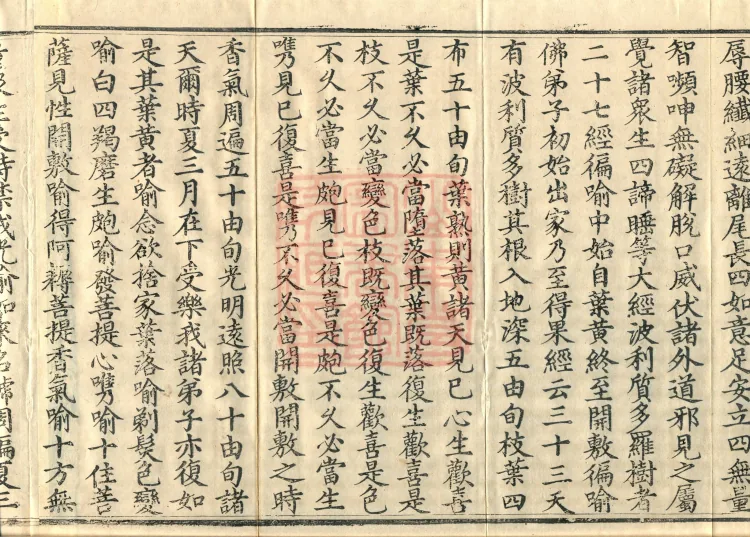 辱腰纖細遠離尾長四如意足安立四無量
智嚬呻無礙解脫口威伏諸外道邪見之屬
覺諸眾生四諦睡等大經波利質多羅樹者
二十七經徧喻中始自葉黃終至開敷徧喻
佛弟子初始出家乃至得果經云三十三天
有波利質多樹其根入地深五由旬枝葉四
布五十由旬葉熟則黃諸天見已心生歡喜
是葉不久必當墮落其葉既落復生歡喜是
枝不久必當變色枝既變色復生歡喜是色
不久必當生皰見已復喜是皰不久必當生
嘴見已復喜是嘴不久必當開敷開敷之時
香氣周遍五十由旬光明遠照八十由旬諸
天爾時夏三月在下受樂我諸弟子亦復如
是其葉黃者喻念欲捨家葉落喻剃髮色變
喻白四羯磨生皰喻發菩提心嘴喻十住菩
薩見性開敷喻得阿耨菩提香氣喻十方無